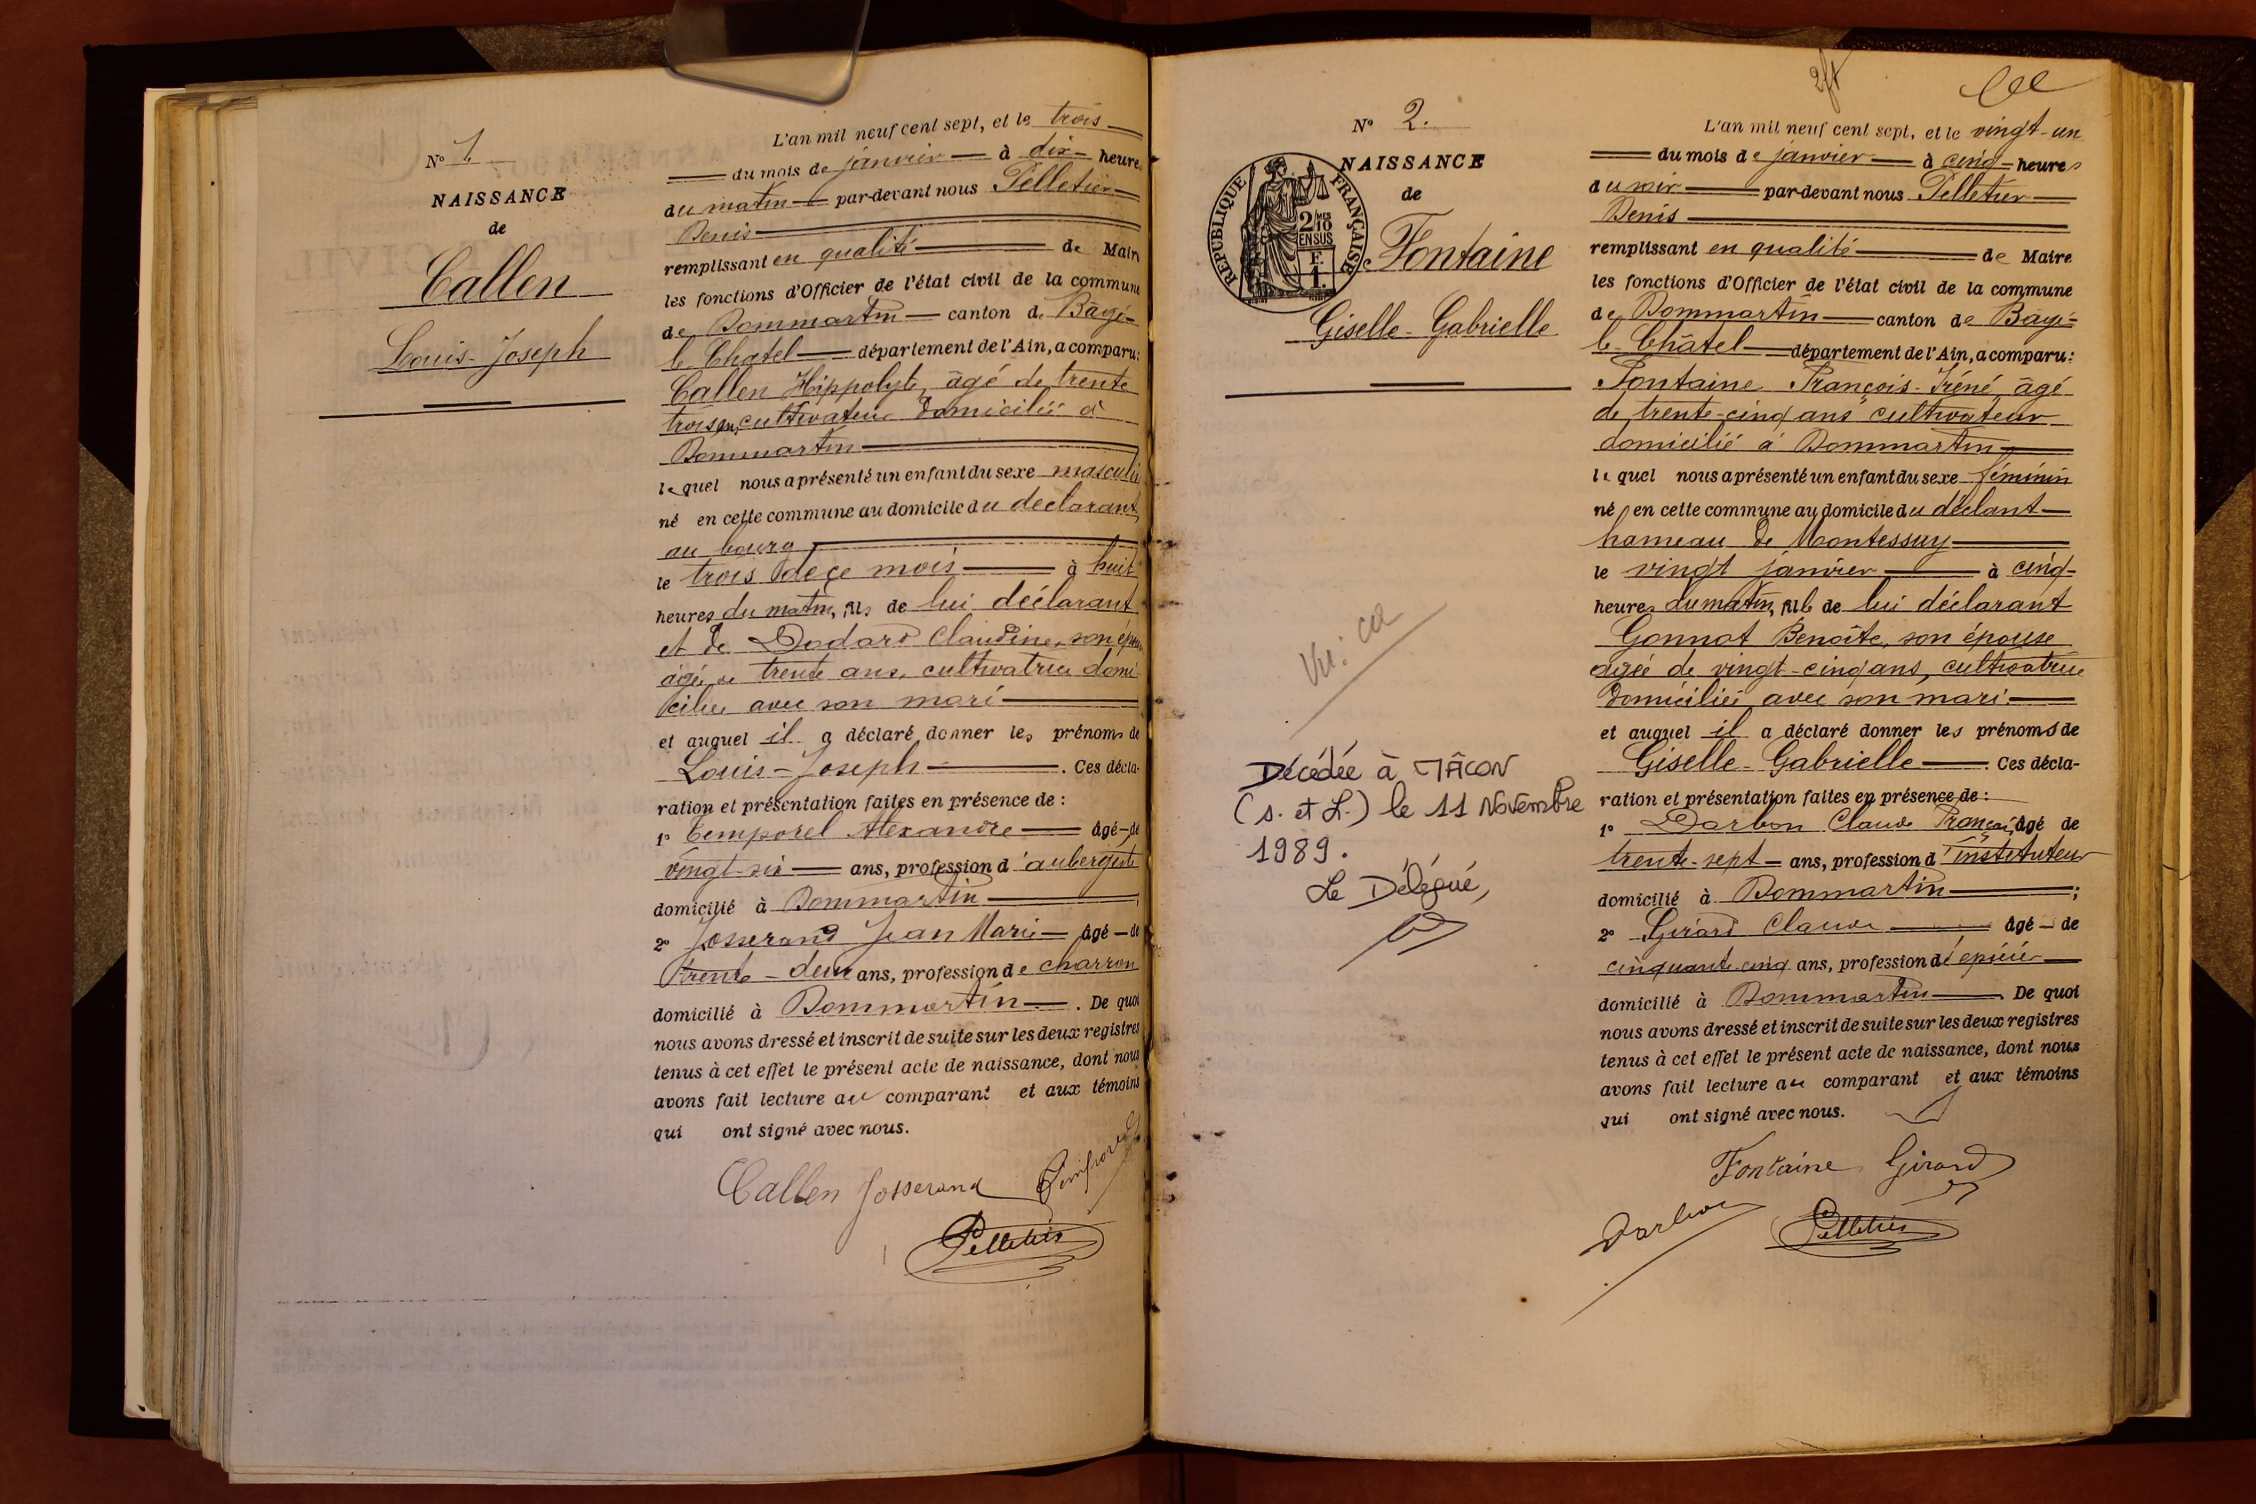 N° 1.
NAISSANCE
de
Callen
Louis-Joseph
L'an mil neuf cent sept, et le trois
du mois de janvier à dix heures
du matin par-devant nous Pelletier
Denis
remplissant en qualité de Maire
les fonctions d'Officier de l'état civil de la commune
de Dommartin canton de Bâgé-
le Chatel département de l'Ain, a comparu:
Callen Hippolyte, âgé de trente
trois ans, cultivateur domicilié à
Dommartin
lequel nous a présenté un enfant du sexe masculin
né en cette commune au domicile du déclarant
au bourg
le trois de ce mois à huit
heures du matin, fils de lui déclarant
et de Dodard Claudine, son épouse
âgée de trente ans, cultivatrice domi-
ciliée avec son mari
et auquel il a déclaré donner les prénoms de
Louis-Joseph. Ces décla-
ration et présentation faites en présence de :
1° Temporel Alexandre âgé de
vingt-six ans, profession d'aubergiste
domicilié à Dommartin
2° Josserand Jean Marie âgé de
trente-deux ans, profession de charron
domicilié à Dommartin. De quoi
nous avons dressé et inscrit de suite sur les deux registres
tenus à cet effet le présent acte de naissance, dont nous
avons fait lecture au comparant et aux témoins
qui ont signé avec nous.
Callen Josserand Temporel
Pelletier
N° 2.
NAISSANCE
de
Fontaine
Giselle-Gabrielle
RÉPUBLIQUE FRANÇAISE
2/10
EN SUS
F.
1.
Vu:
Décédée à MÂCON
(S. et L.) le 11 Novembre
1989.
Le Délégué,
L'an mil neuf cent sept, et le vingt-un
du mois de janvier à cinq heures
du soir par-devant nous Pelletier
Denis
remplissant en qualité de Maire
les fonctions d'Officier de l'état civil de la commune
de Dommartin canton de Bâgé-
le-Châtel département de l'Ain, a comparu:
Fontaine François-Iréné âgé
de trente-cinq ans cultivateur
domicilié à Dommartin
lequel nous a présenté un enfant du sexe féminin
né en cette commune au domicile du déclant
hameau de Montessuy
le vingt janvier à cinq
heures du matin, fille de lui déclarant
Gonnot Benoîte, son épouse
agée de vingt-cinq ans, cultivatrice
domiciliée avec son mari
et auquel il a déclaré donner les prénoms de
Giselle-Gabrielle. Ces décla-
ration et présentation faites en présence de :
1° Darbon Claude François, âgé de
trente-sept ans, profession d'instituteur
domicilié à Dommartin;
2° Girard Claude âgé de
cinquante-cinq ans, profession d'épicier
domicilié à Dommartin. De quoi
nous avons dressé et inscrit de suite sur les deux registres
tenus à cet effet le présent acte de naissance, dont nous
avons fait lecture au comparant et aux témoins
qui ont signé avec nous.
Fontaine Girard
Darbon Pelletier